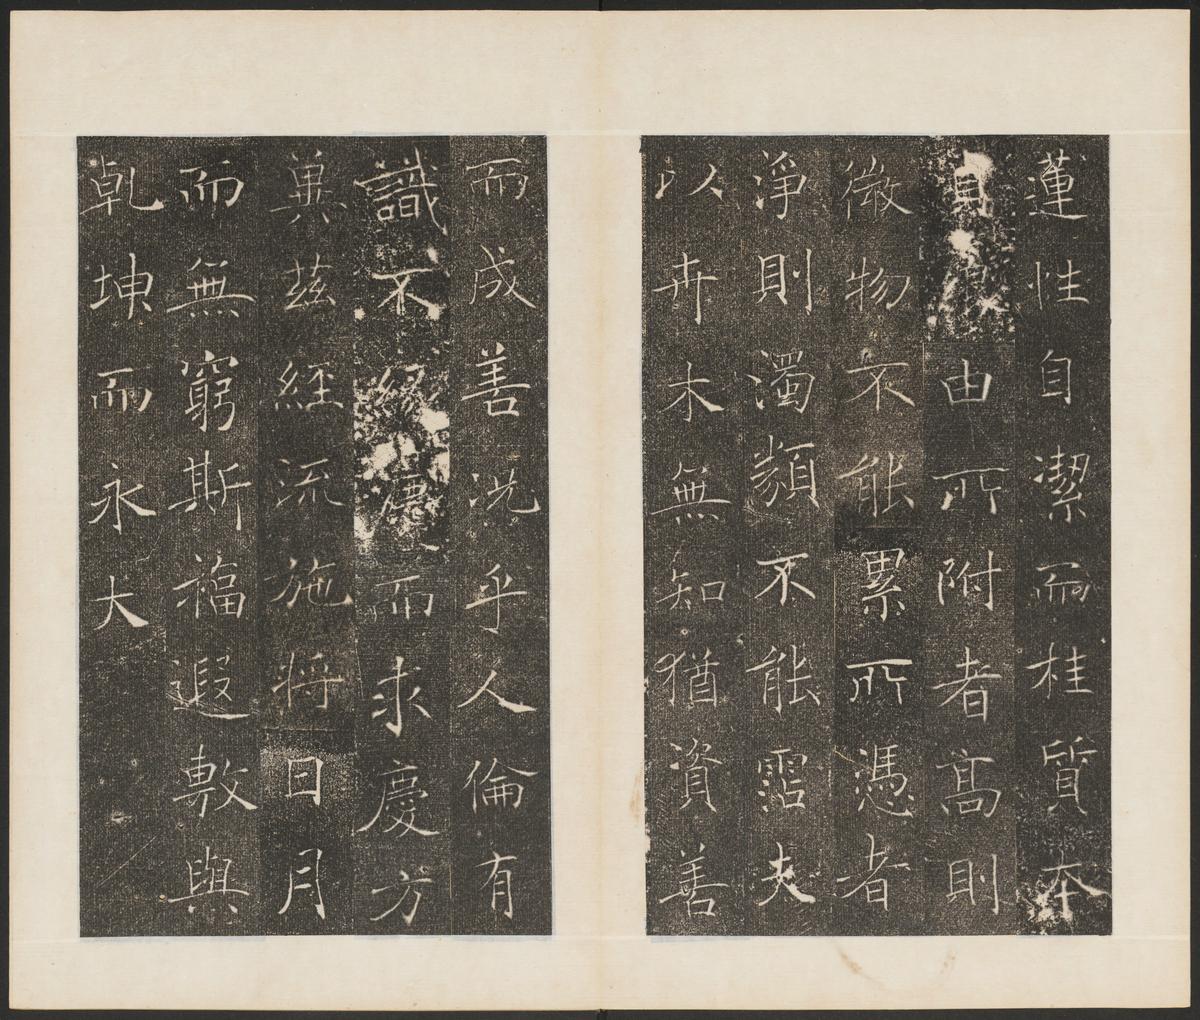 蓮性自潔而桂質本
貞良由所附者高則
微物不能累所憑者
淨則濁類不能霑夫
以卉木無知猶資善
而成善況乎人倫有
識不緣慶而求慶方
兾茲經流施将日月
而無窮斯福遐敷與
乹坤而永大